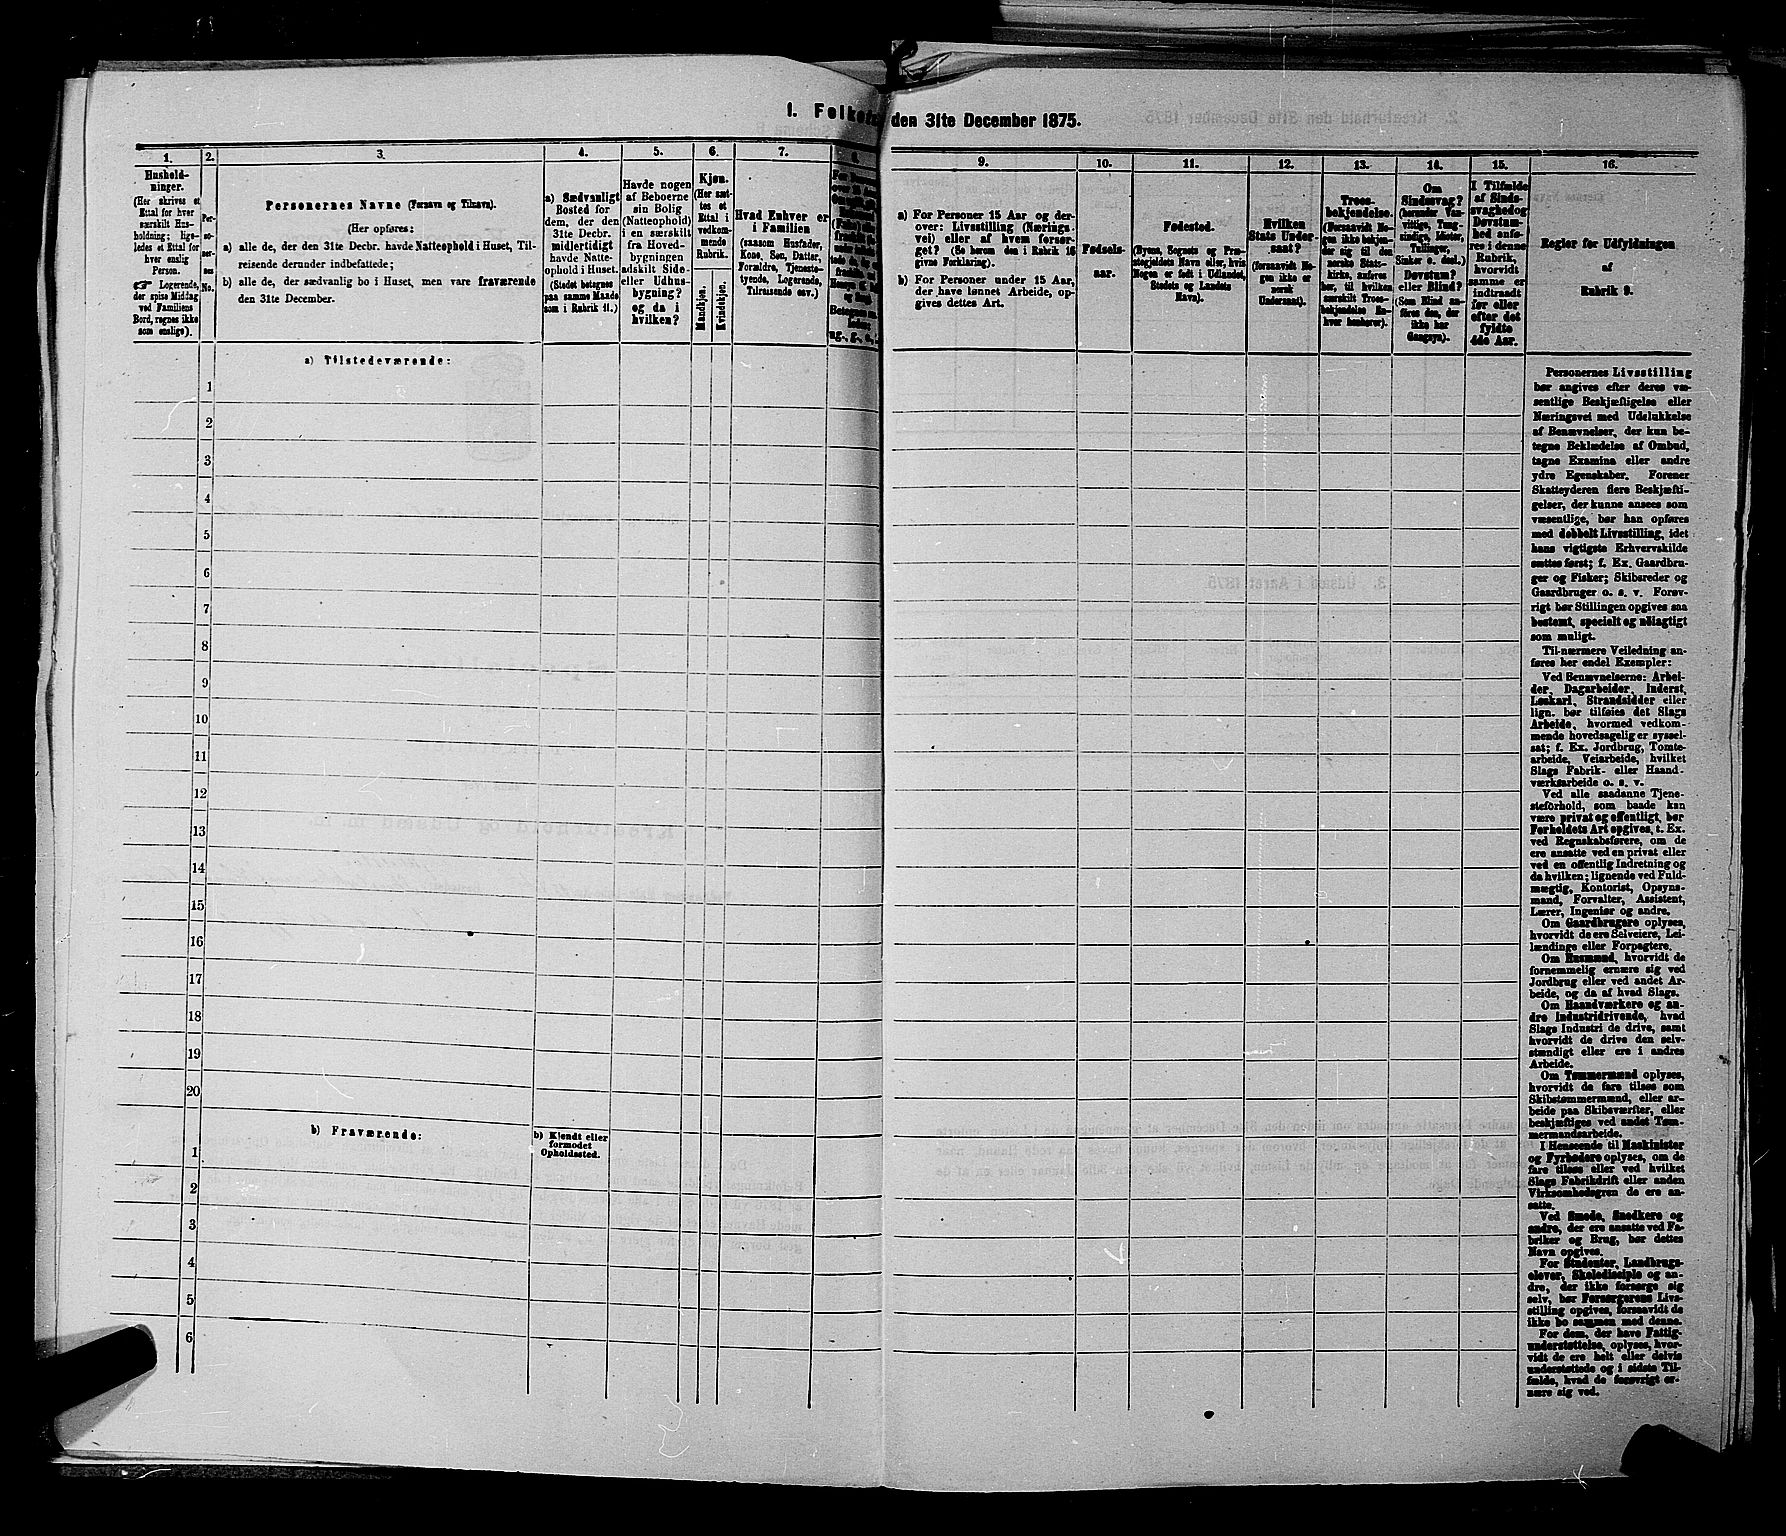 1. Folketal den 31te December 1875.
1.
Hushold-
ninger.
(Her skrives et
Ettal for hver
særskilt Hus-
holdning; lige-
ledes et Ettal for
hver enslig
Person.
☞ Logerende,
der spise Middag
ved Familiens
Bord, regnes ikke
som enslige).
2.
Per-
so-
ner-
nes
No.
3.
Personernes Navne (Fornavn og Tilnavn).
(Her opføres:
a) alle de, der den 31te Decbr. havde Natteophold i Huset, Til-
reisende derunder indbefattede;
b) alle de, der sædvanlig bo i Huset, men vare fraværende
den 31te December.
4.
a) Sædvanligt
Bosted for
dem, der den
31te Decbr.
midlertidigt
havde Natte-
ophold i Huset.
(Stedet betegnes
paa samme Maade
som i Rubrik 11.)
5.
Havde nogen
af Beboerne
sin Bolig
(Natteophold)
i en særskilt
fra Hoved-
bygningen
adskilt Side-
eller Udhus-
bygning?
og da i
hvilken?
6.
Kjøn.
(Her sæt-
tes et
Ettal i
vedkom-
mende
Rubrik.
Mandkjøn.
Kvindekjøn.
7.
Hvad Enhver er
i Familien
(saasom Husfader,
Kone, Søn, Datter,
Forældre, Tjeneste-
tyende, Logerende,
Tilreisende osv.)
8.
9.
a) For Personer 15 Aar og der-
over: Livsstilling (Nærings-
vei) eller af hvem forsør-
get? (Se herom den i Rubrik 16
givne Forklaring).
b) For Personer under 15 Aar,
der have lønnet Arbeide, op-
gives dettes Art.
10.
Fødsels-
aar.
11.
Fødested.
(Byens, Sognets og Præ-
stegjeldets Navn eller, hvis
Nogen er født i Udlandet,
Stedets og Landets
Navn).
12.
Hvilken
Stats Under-
saat?
(forsaavidt No-
gen ikke er
norsk
Undersaat).
13.
Troes-
bekjendelse.
(Forsaavidt No-
gen ikke bekjen-
der sig til den
norske Stats-
kirke, anføres
her, til hvilken
særskilt Troes-
bekjendelse En-
hver henhører).
14.
Om
Sindssvag?
(herunder Van-
vittige, Tung-
sindige, Idioter,
Tullinger,
Sinker o. desl.)
Døvstum?
eller Blind?
(Som Blind an-
føres den, der
ikke har
Gangsyn).
15.
I Tilfælde
af Sinds-
svaghed og
Døvstum-
hed anfø-
res i denne
Rubrik,
hvorvidt
samme er
indtraadt
før eller
efter det
fyldte
4de Aar.
16.
Regler for Udfyldningen
af
Rubrik 9.
a) Tilstedeværende:
1
2
3
4
5
6
7
8
9
10
11
12
13
14
15
16
17
18
19
20
b) Fraværende:
b) Kjendt eller
formodet
Opholdssted.
1
2
3
4
5
6
Personernes Livsstilling
bør angives efter deres væ-
sentlige Beskjæftigelse eller
Næringsvei med Udelukkelse
af Benævnelser, der kun be-
tegne Beklædelse af Ombud,
tagne Examina eller andre
ydre Egenskaber. Forener
Skatteyderen flere Beskjæfti-
gelser, der kunne ansees som
væsentlige, bør han opføres
med dobbelt Livsstilling, idet
hans vigtigste Erhvervskilde
sættes først; f. Ex. Gaardbru-
ger og Fisker; Skibsreder og
Gaardbruger o. s. v. Forøv-
rigt bør Stillingen opgives saa
bestemt, specielt og nøiagtigt
som muligt.
Til nærmere Veiledning an-
føres her endel Exempler:
Ved Benævnelserne: Arbei-
der, Dagarbeider, Inderst,
Løskarl, Strandsidder eller
lign. bør tilføies det Slags
Arbeide, hvormed vedkom-
mende hovedsagelig er syssel-
sat; f. Ex. Jordbrug, Tomte-
arbeide, Veiarbeide, hvilket
Slags Fabrik- eller Haand-
værksarbeide o. s. v.
Ved alle saadanne Tjene-
steforhold, som baade kan
være privat og offentligt, bør
Forholdets Art opgives, t. Ex.
ved Regnskabsførere, om de
ere ansatte ved en privat eller
ved en offentlig Indretning og
da hvilken; lignende ved Fuld-
mægtig, Kontorist, Opsyns-
mand, Forvalter, Assistent,
Lærer, Ingeniør og andre.
Om Gaardbrugere oplyses,
hvorvidt de ere Selveiere, Lei-
lændinge eller Forpagtere.
Om Husmænd, hvorvidt de
fornemmelig ernære sig ved
Jordbrug eller ved andet Ar-
beide, og da af hvad Slags.
Om Haandværkere og an-
dre Industridrivende, hvad
Slags Industri de drive, samt
hvorvidt de drive den selv-
stændigt eller ere i andres
Arbeide.
Om Tømmermænd oplyses,
hvorvidt de fare tilsøs som
Skibstømmermænd, eller ar-
beide paa Skibsværfter, eller
beskjæftiges ved andet Tøm-
mermandsarbeide.
I Henseende til Maskinister
og Fyrbødere oplyses, om de
fare tilsøs eller ved hvilket
Slags Fabrikdrift eller anden
Virksomhedsgren de ere an-
satte.
Ved Smede, Snedkere og
andre, der ere ansatte ved Fa-
briker og Brug, bør dettes
Navn opgives.
For Studenter, Landbrugs-
elever, Skoledisciple og an-
dre, der ikke forsørge sig
selv, bør Forsørgerens Livs-
stilling opgives, forsaavidt de
ikke bo sammen med denne.
For dem, der have Fattig-
understøttelse, oplyses, hvor-
vidt de ere helt eller delvis
understøttede og i sidste Til-
fælde, hvad de forøvrigt er-
nære sig ved.